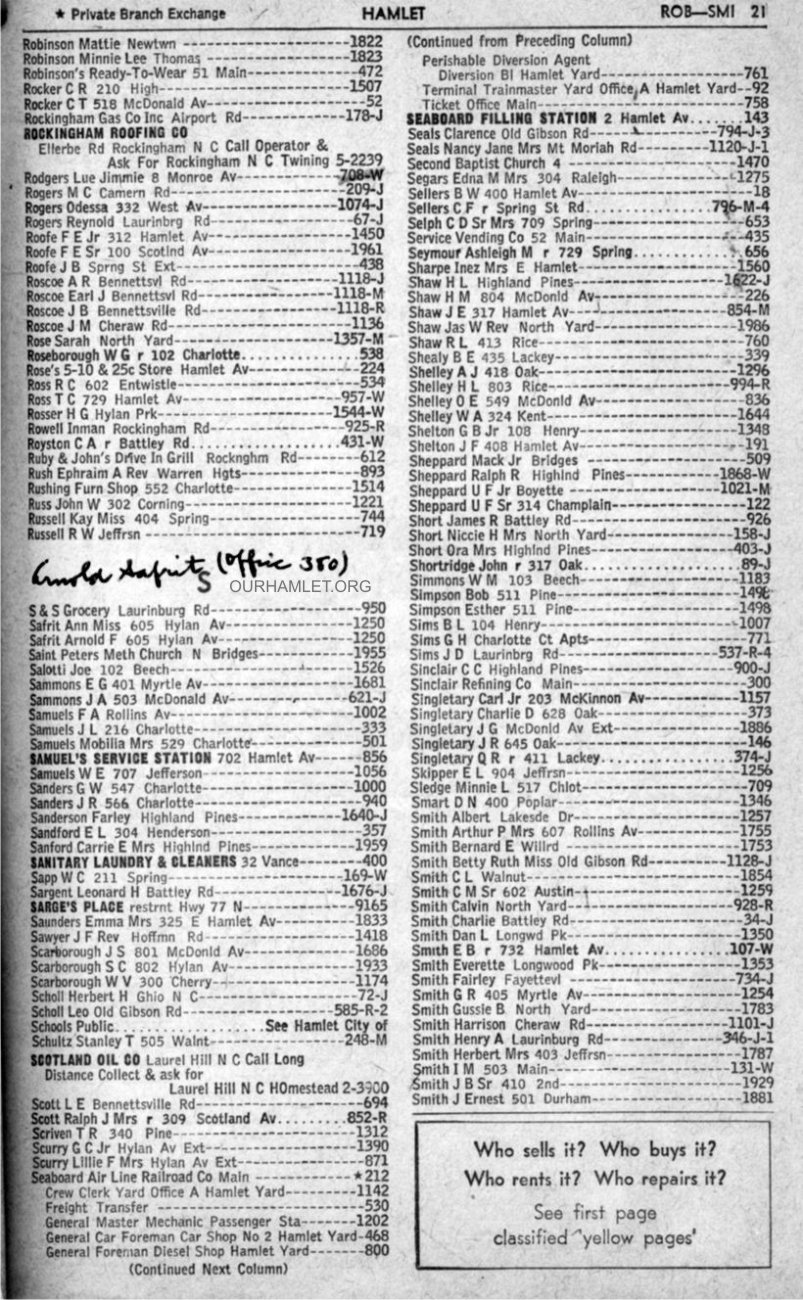 ★ Private Branch Exchange
HAMLET
ROB—SMI 21
Robinson Mattie Newtwn -----1822
Robinson Minnie Lee Thomas -----1823
Robinson's Ready-To-Wear 51 Main-----472
Rocker C R 210 High-----1507
Rocker C T 518 McDonald Av-----52
Rockingham Gas Co Inc Airport Rd-----178-J
ROCKINGHAM ROOFING CO
Ellerbe Rd Rockingham N C Call Operator &
Ask For Rockingham N C Twining 5-2239
Rodgers Lue Jimmie 8 Monroe Av-----708-W
Rogers M C Camern Rd-----209-J
Rogers Odessa 332 West Av-----1074-J
Rogers Reynold Laurinbrg Rd-----67-J
Roofe F E Jr 312 Hamlet Av-----1450
Roofe F E Sr 100 Scotlnd Av-----1961
Roofe J B Sprng St Ext-----438
Roscoe A R Bennettsvl Rd-----1118-J
Roscoe Earl J Bennettsvl Rd-----1118-M
Roscoe J B Bennettsville Rd-----1118-R
Roscoe J M Cheraw Rd-----1136
Rose Sarah North Yard-----1357-M
Roseborough W G r 102 Charlotte.....538
Rose's 5-10 & 25c Store Hamlet Av-----224
Ross R C 602 Entwistle-----534
Ross T C 729 Hamlet Av-----957-W
Rosser H G Hylan Prk-----1544-W
Rowell Inman Rockingham Rd-----925-R
Royston C A r Battley Rd.....431-W
Ruby & John's Drive In Grill Rocknghm Rd-----612
Rush Ephraim A Rev Warren Hgts-----893
Rushing Furn Shop 552 Charlotte-----1514
Russ John W 302 Corning-----1221
Russell Kay Miss 404 Spring-----744
Russell R W Jeffrsn -----719
Arnold Safrit (Office 350)
S
OURHAMLET.ORG
S & S Grocery Laurinburg Rd-----950
Safrit Ann Miss 605 Hylan Av-----1250
Safrit Arnold F 605 Hylan Av-----1250
Saint Peters Meth Church N Bridges-----1955
Salotti Joe 102 Beech-----1526
Sammons E G 401 Myrtle Av-----1681
Sammons J A 503 McDonald Av-----621-J
Samuels F A Rollins Av-----1002
Samuels J L 216 Charlotte-----333
Samuels Mobilia Mrs 529 Charlotte-----501
SAMUEL'S SERVICE STATION 702 Hamlet Av-----856
Samuels W E 707 Jefferson-----1056
Sanders G W 547 Charlotte-----1000
Sanders J R 566 Charlotte-----940
Sanderson Farley Highland Pines-----1640-J
Sandford E L 304 Henderson-----357
Sanford Carrie E Mrs Highlnd Pines-----1959
SANITARY LAUNDRY & CLEANERS 32 Vance-----400
Sapp W C 211 Spring-----169-W
Sargent Leonard H Battley Rd-----1676-J
SARGE'S PLACE restrnt Hwy 77 N-----9165
Saunders Emma Mrs 325 E Hamlet Av-----1833
Sawyer J F Rev Hoffmn Rd-----1418
Scarborough J S 801 McDonld Av-----1686
Scarborough S C 802 Hylan Av-----1933
Scarborough W V 300 Cherry-----1174
Scholl Herbert H Ghio N C-----72-J
Scholl Leo Old Gibson Rd-----585-R-2
Schools Public.....See Hamlet City of
Schultz Stanley T 505 Walnt-----248-M
SCOTLAND OIL CO Laurel Hill N C Call Long
Distance Collect & ask for
Laurel Hill N C HOmestead 2-3900
Scott L E Bennettsville Rd-----694
Scott Ralph J Mrs r 309 Scotland Av.....852-R
Scriven T R 340 Pine-----1312
Scurry G C Jr Hylan Av Ext-----1390
Scurry Lillie F Mrs Hylan Av Ext-----871
Seaboard Air Line Railroad Co Main -----★212
Crew Clerk Yard Office A Hamlet Yard-----1142
Freight Transfer -----530
General Master Mechanic Passenger Sta-----1202
General Car Foreman Car Shop No 2 Hamlet Yard-468
General Foreman Diesel Shop Hamlet Yard-----800
(Continued Next Column)
(Continued from Preceding Column)
Perishable Diversion Agent
Diversion Bl Hamlet Yard-----761
Terminal Trainmaster Yard Office A Hamlet Yard--92
Ticket Office Main-----758
SEABOARD FILLING STATION 2 Hamlet Av.....143
Seals Clarence Old Gibson Rd-----794-J-3
Seals Nancy Jane Mrs Mt Moriah Rd-----1120-J-1
Second Baptist Church 4 -----1470
Segars Edna M Mrs 304 Raleigh-----1275
Sellers B W 400 Hamlet Av-----18
Sellers C F r Spring St Rd.....796-M-4
Selph C D Sr Mrs 709 Spring-----653
Service Vending Co 52 Main-----435
Seymour Ashleigh M r 729 Spring.....656
Sharpe Inez Mrs E Hamlet-----1560
Shaw H L Highland Pines-----1622-J
Shaw H M 804 McDonld Av-----226
Shaw J E 317 Hamlet Av-----854-M
Shaw Jas W Rev North Yard-----1986
Shaw R L 413 Rice-----760
Shealy B E 435 Lackey-----339
Shelley A J 418 Oak-----1296
Shelley H L 803 Rice-----994-R
Shelley O E 549 McDonld Av-----836
Shelley W A 324 Kent-----1644
Shelton G B Jr 108 Henry-----1348
Shelton J F 408 Hamlet Av-----191
Sheppard Mack Jr Bridges -----509
Sheppard Ralph R Highlnd Pines-----1868-W
Sheppard U F Jr Boyette -----1021-M
Sheppard U F Sr 314 Champlain-----122
Short James R Battley Rd-----926
Short Niccie H Mrs North Yard-----158-J
Short Ora Mrs Highlnd Pines-----403-J
Shortridge John r 317 Oak.....89-J
Simmons W M 103 Beech-----1183
Simpson Bob 511 Pine-----1498
Simpson Esther 511 Pine-----1498
Sims B L 104 Henry-----1007
Sims G H Charlotte Ct Apts-----771
Sims J D Laurinbrg Rd-----537-R-4
Sinclair C C Highland Pines-----900-J
Sinclair Refining Co Main-----300
Singletary Carl Jr 203 McKinnon Av-----1157
Singletary Charlie D 628 Oak-----373
Singletary J G McDonld Av Ext-----1886
Singletary J R 645 Oak-----146
Singletary Q R r 411 Lackey.....374-J
Skipper E L 904 Jeffrsn-----1256
Sledge Minnie L 517 Chlot-----709
Smart D N 400 Poplar-----1346
Smith Albert Lakesde Dr-----1257
Smith Arthur P Mrs 607 Rollins Av-----1755
Smith Bernard E Willrd -----1753
Smith Betty Ruth Miss Old Gibson Rd-----1128-J
Smith C L Walnut-----1854
Smith C M Sr 602 Austin-----1259
Smith Calvin North Yard-----928-R
Smith Charlie Battley Rd-----34-J
Smith Dan L Longwd Pk-----1350
Smith E B r 732 Hamlet Av.....107-W
Smith Everette Longwood Pk-----1353
Smith Fairley Fayettevl -----734-J
Smith G R 405 Myrtle Av-----1254
Smith Gussie B North Yard-----1783
Smith Harrison Cheraw Rd-----1101-J
Smith Henry A Laurinburg Rd-----346-J-1
Smith Herbert Mrs 403 Jeffrsn-----1787
Smith I M 503 Main-----131-W
Smith J B Sr 410 2nd-----1929
Smith J Ernest 501 Durham-----1881
Who sells it? Who buys it?
Who rents it? Who repairs it?
See first page
classified 'yellow pages'